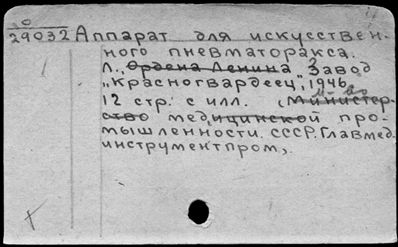 29032 Аппарат для искусствен-
ного пневматоракса.
Л., Ордена Ленина Завод
"Красногвардеец", 1946.
12 стр. с илл. (Министер-
ство медицинской про-
мышленности СССР. Главмед.
инструментпром).